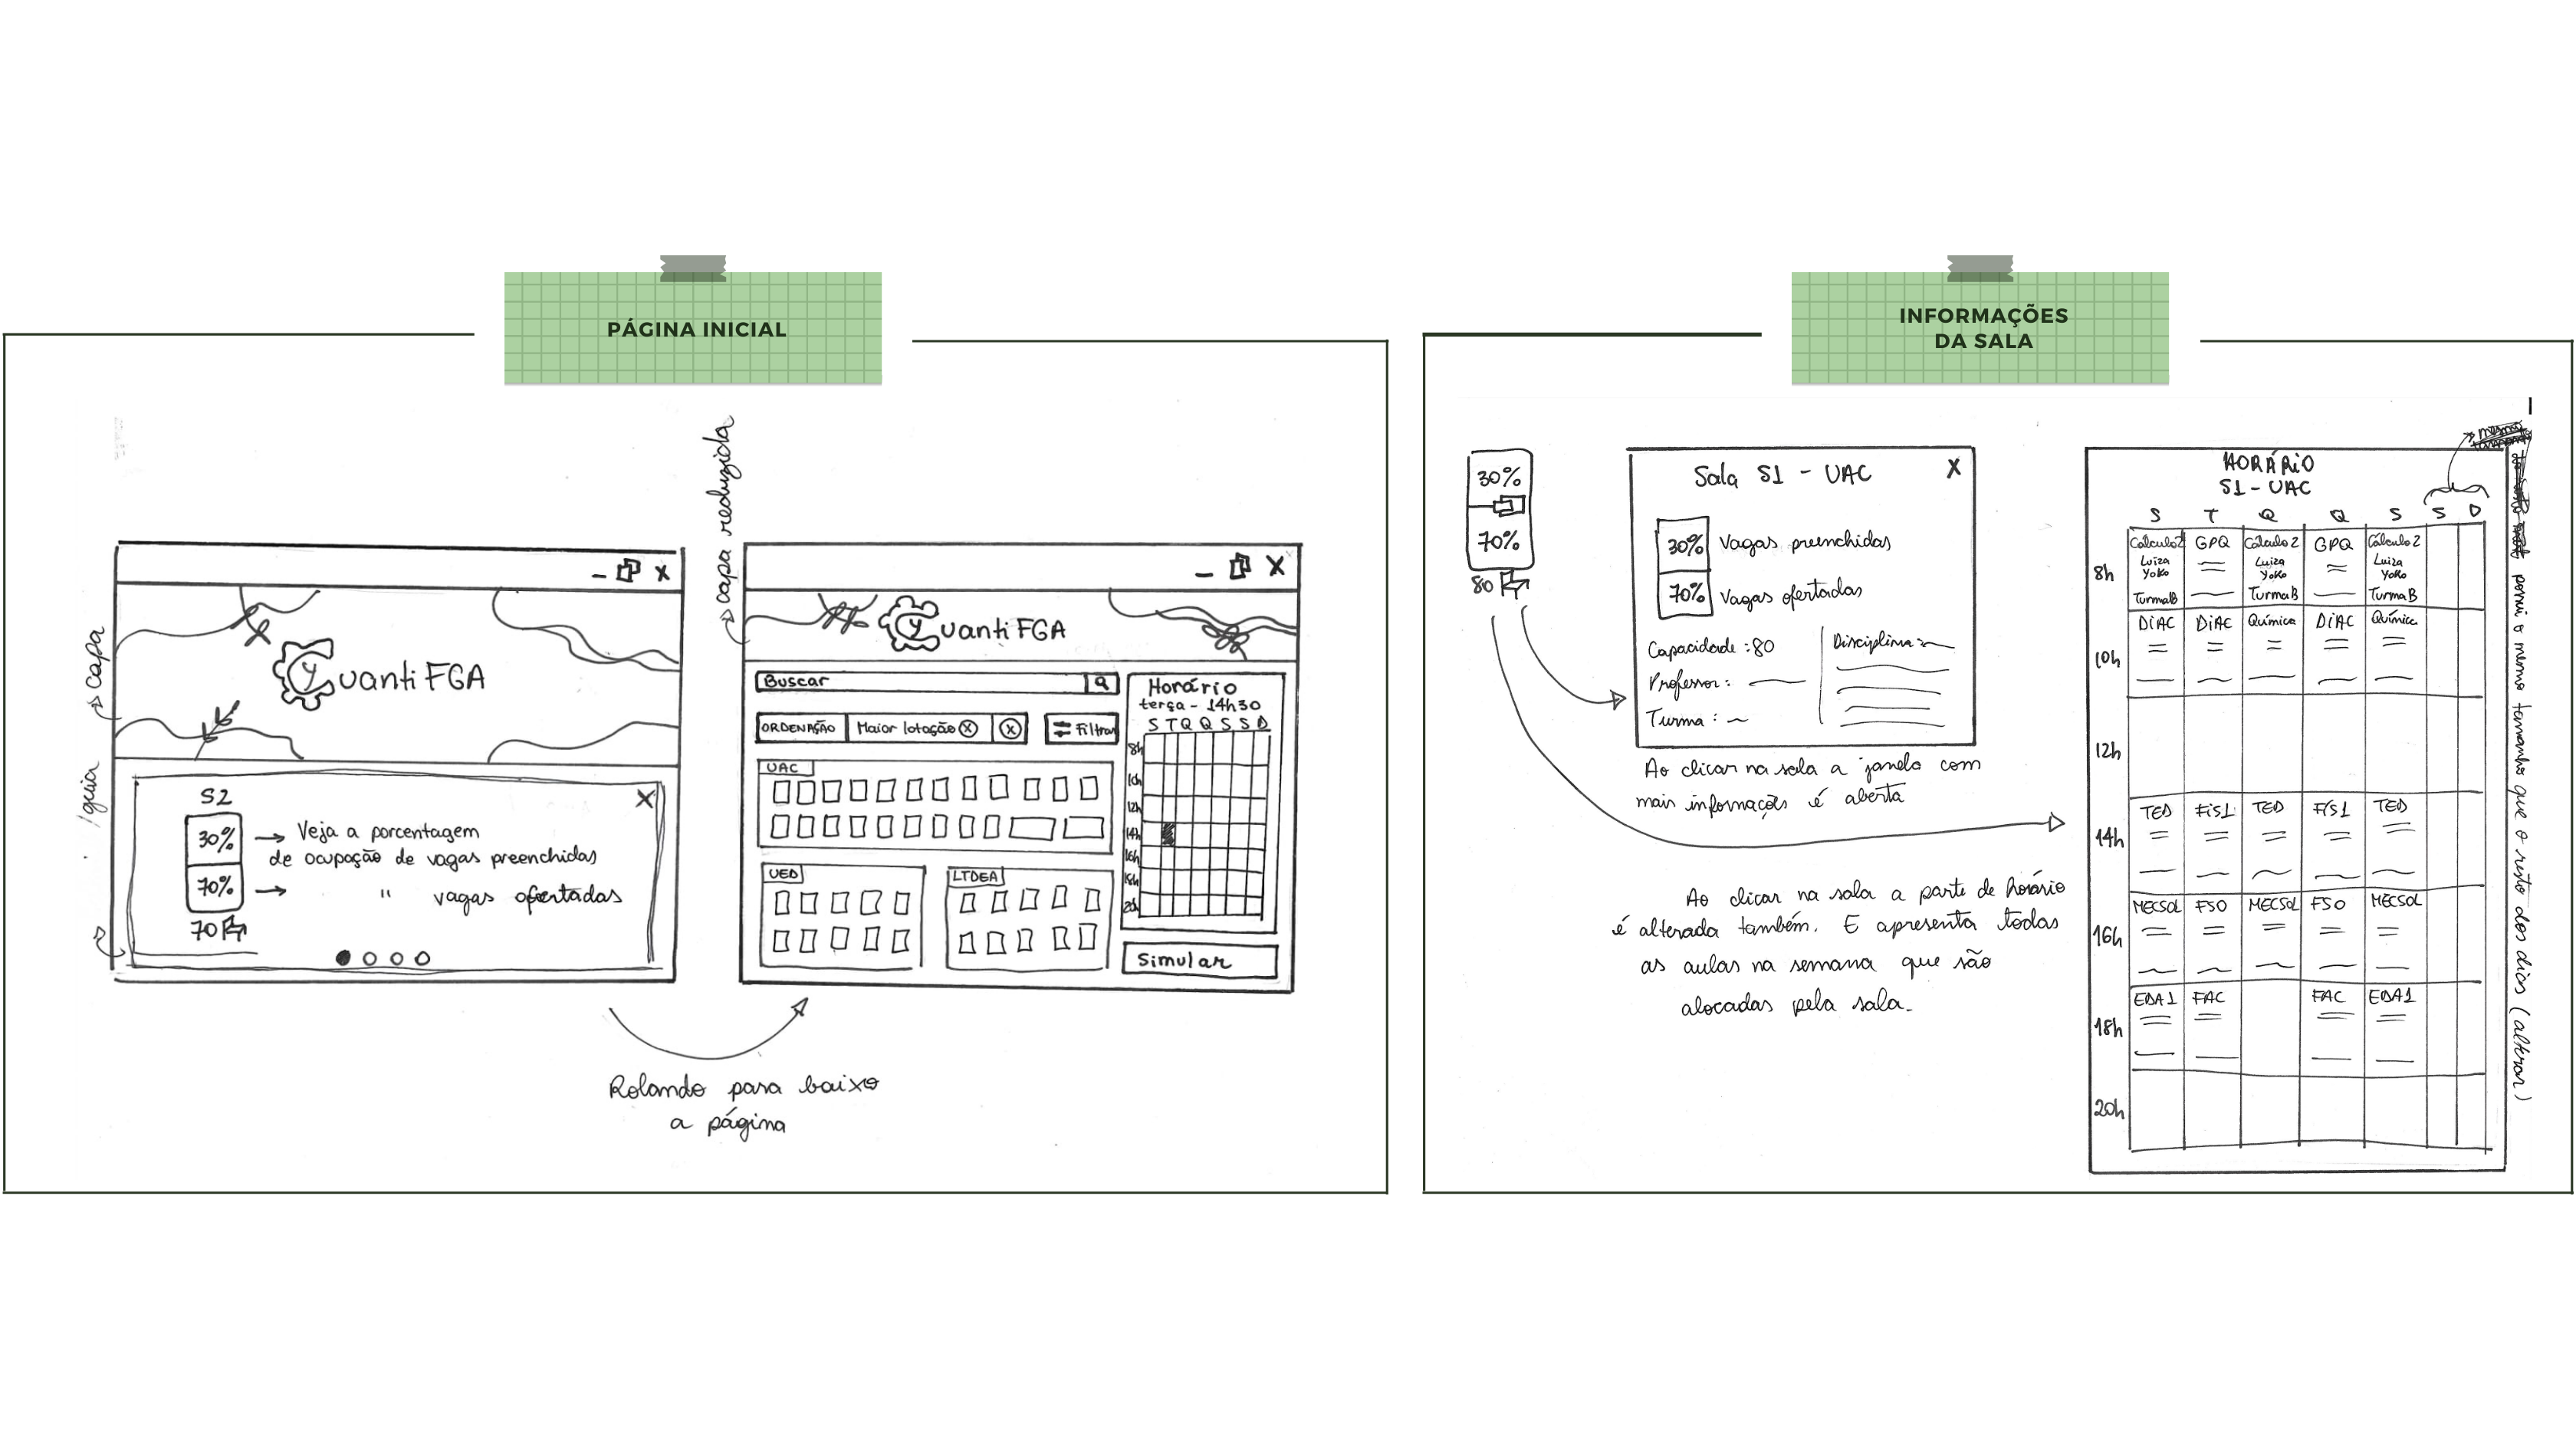 PÁGINA INICIAL
capa
guia
uanti FGA
S2
30%
Veja a porcentagem
de ocupação de vagas preenchidas
70%
" vagas ofertadas
70
capa reduzida
uanti FGA
Buscar
ORDENAÇÃO
Maior lotação
Filtrar
UAC
UED
LTDEA
Horário
terça - 14h30
S T Q Q S S D
8h
10h
12h
14h
16h
18h
20h
Simular
Rolando para baixo
a página
INFORMAÇÕES
DA SALA
30%
70%
80
Sala S1 - UAC X
30% Vagas preenchidas
70% Vagas ofertadas
Capacidade : 80
Professor:
Turma :
Disciplina:
Ao clicar na sala a janela com
mais informações é aberta
Ao clicar na sala a parte de horário
é alterada também. E apresenta todas
as aulas na semana que são
alocadas pela sala.
HORÁRIO
S1 - UAC
S T Q Q S S D
8h
Cálculo2 GPQ Cálculo 2 GPQ Cálculo 2
Luiza Luiza Luiza
Yoko Yoko Yoko
TurmaB TurmaB TurmaB
10h
DIAC DIAC Química DIAC Química
12h
14h
TED FíS1 TED FíS1 TED
16h
MECSOL FSO MECSOL FSO MECSOL
18h
EDA1 FAC FAC EDA1
20h
possui o mesmo tamanho que o resto dos dias (alterar)